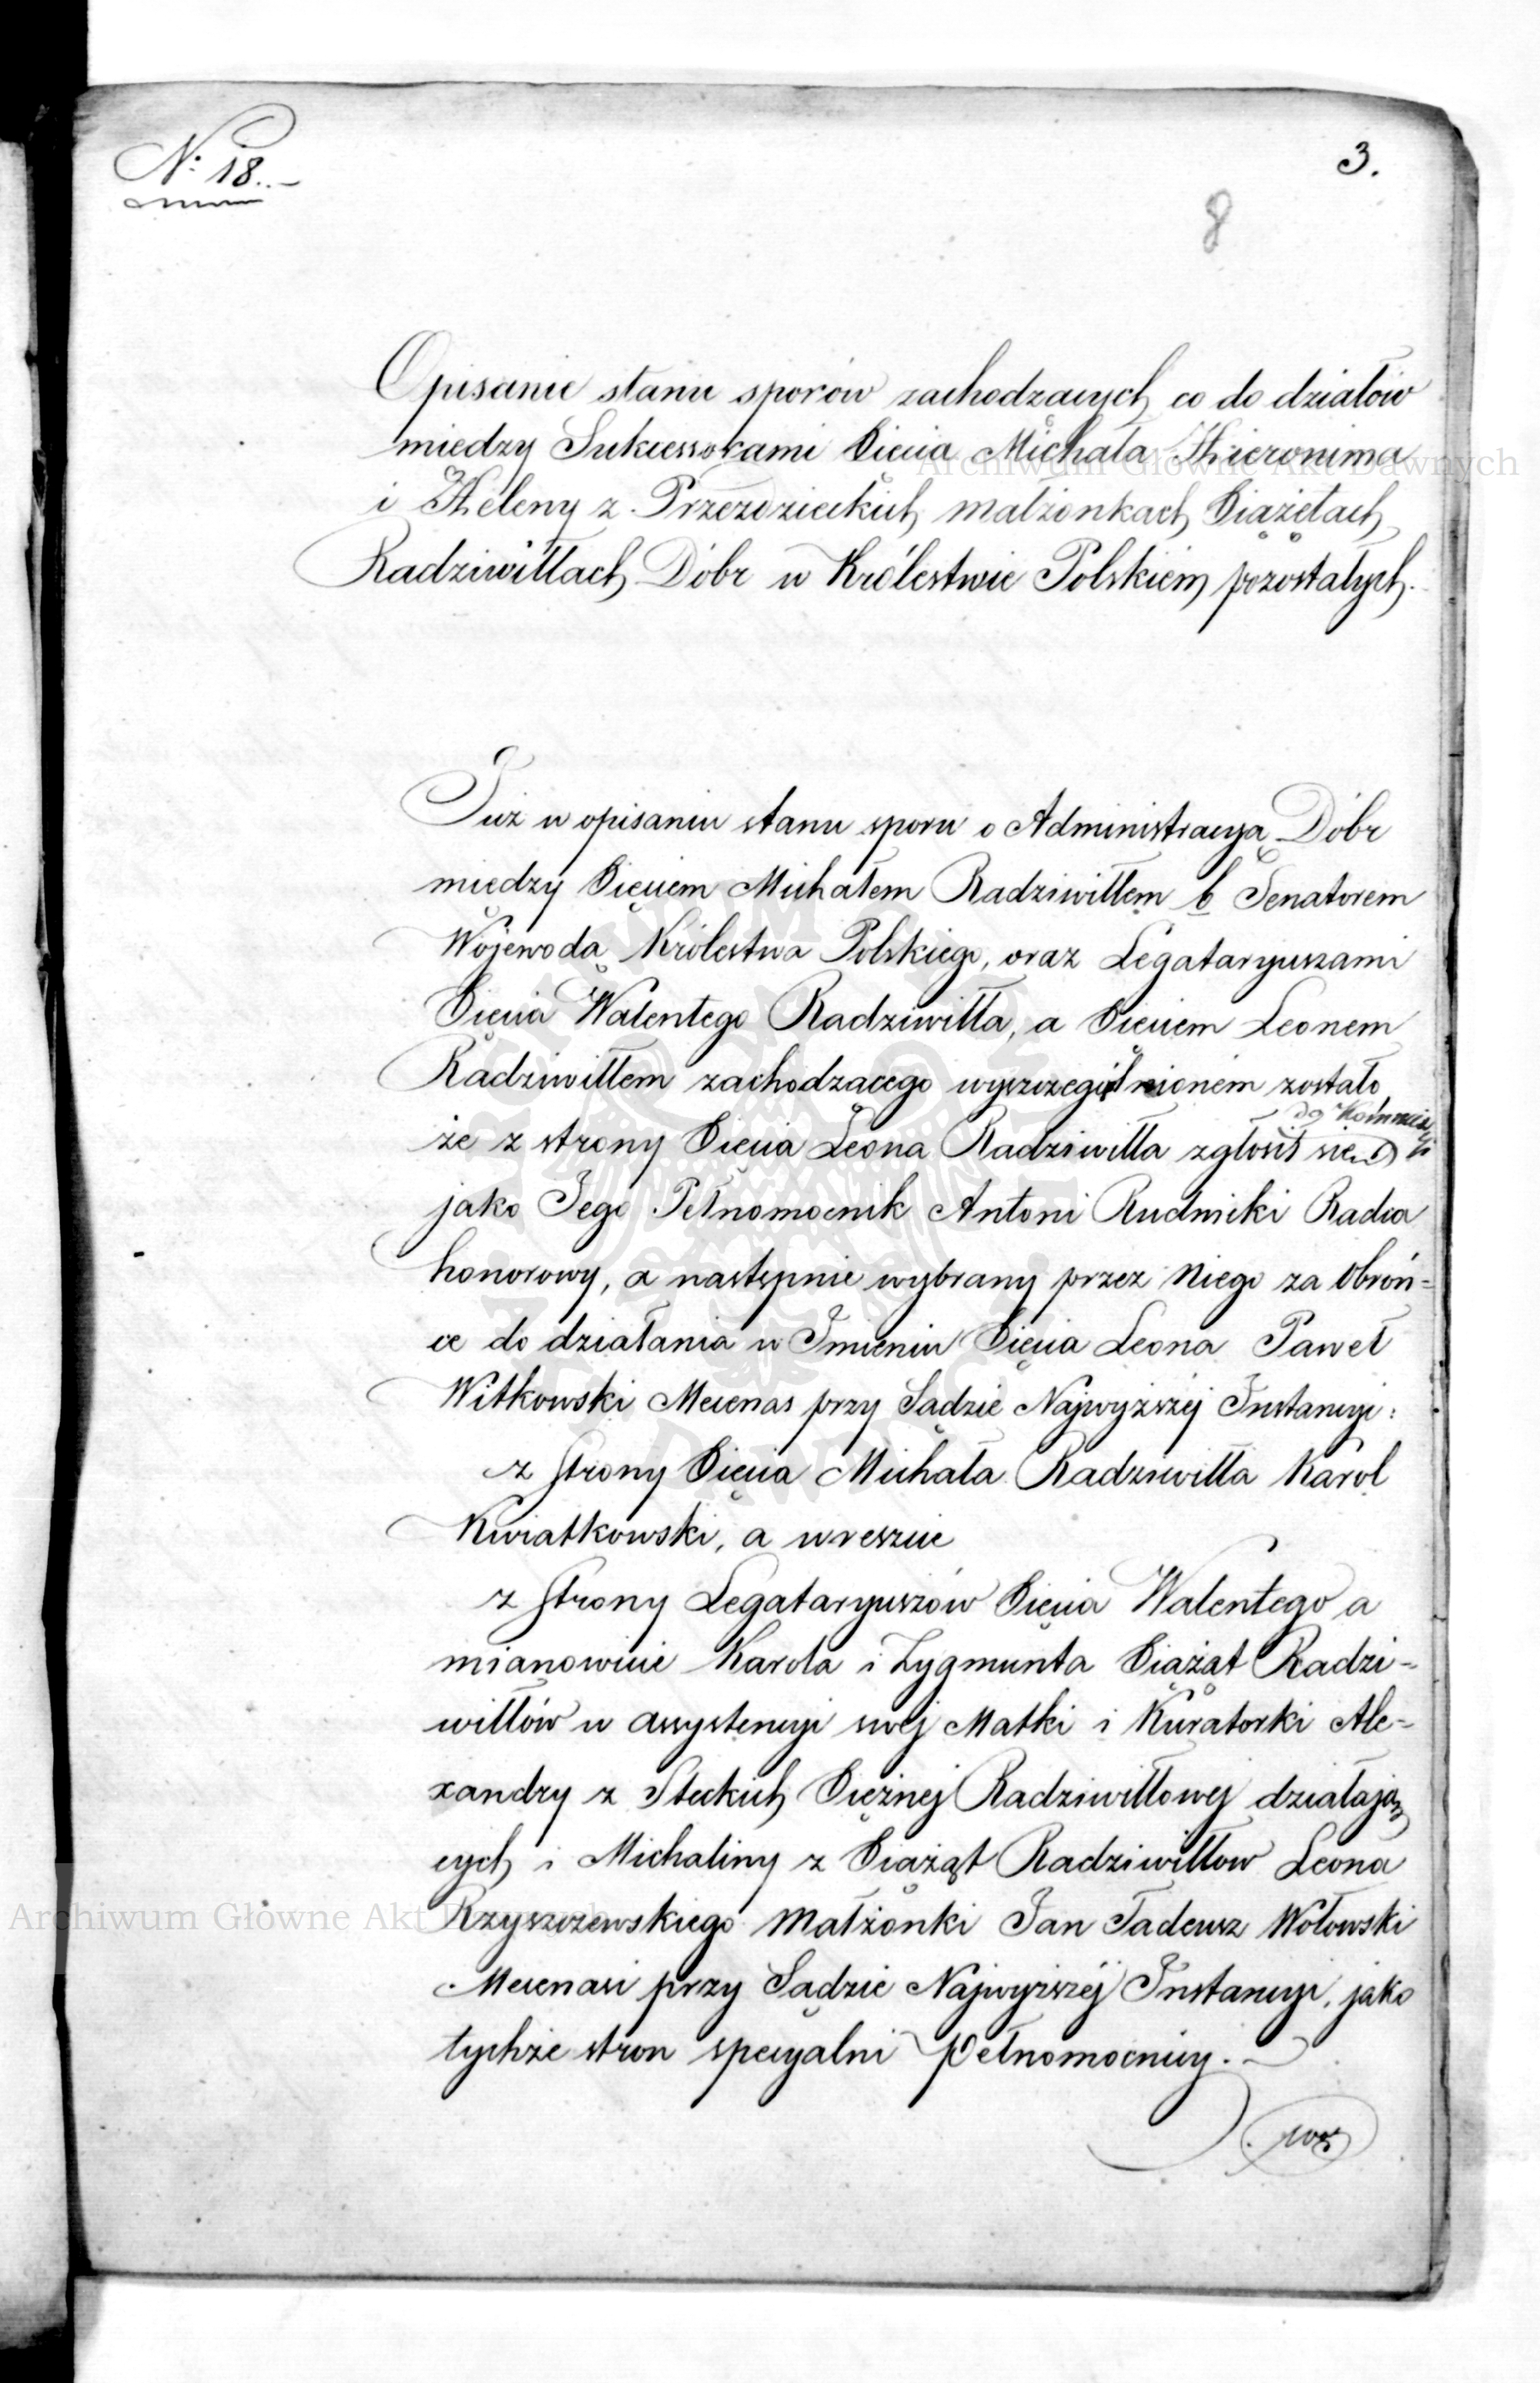 N: 18.
3.
8
Opisanie stanu sporów zachodzących co do działów
między Sukcessorami Xięcia Michała Hieronima
i Heleny z Przezdzieckich małżonkach Xiążętach
Radziwiłłach Dóbr w Królestwie Polskiém pozostałych.
Już w opisaniu stanu sporu o Administracyą Dóbr
między Xięciem Michałem Radziwiłłem b Senatorem
Wojewodą Królestwa Polskiego, oraz Legataryuszami
Xięcia Walentego Radziwiłła, a Xięciem Leonem
Radziwiłłem zachodzącego wyszczególnioném zostało
do Kommissyi
że z strony Xięcia Leona Radziwiłła zgłosił się
jako Jego Pełnomocnik Antoni Rudnicki Radca
honorowy, a następnie wybrany przez Niego za Obroń=
cę do działania w Imieniu Xięcia Leona Paweł
Witkowski Mecenas przy Sądzie Najwyższéj Instancyi:
z strony Xięcia Michała Radziwiłła Karol
Kwiatkowski, a wreszcie
z strony Legataryuszów Xięcia Walentego a
mianowicie Karola i Zygmunta Xiążąt Radzi=
wiłłów w assystencyi swéj Matki i Kuratorki Ale=
xandry z Steckich Xiężnéj Radziwiłłowéj działają=
cych i Michaliny z Xiążąt Radziwiłłów Leona
Rzyszczewskiego Małżonki Jan Tadeusz Wołowski
Mecenasi przy Sądzie Najwyższéj Instancyi, jako
tychże stron specyalni Pełnomocnicy.
Archiwum Główne Akt Dawnych
Archiwum Główne Akt